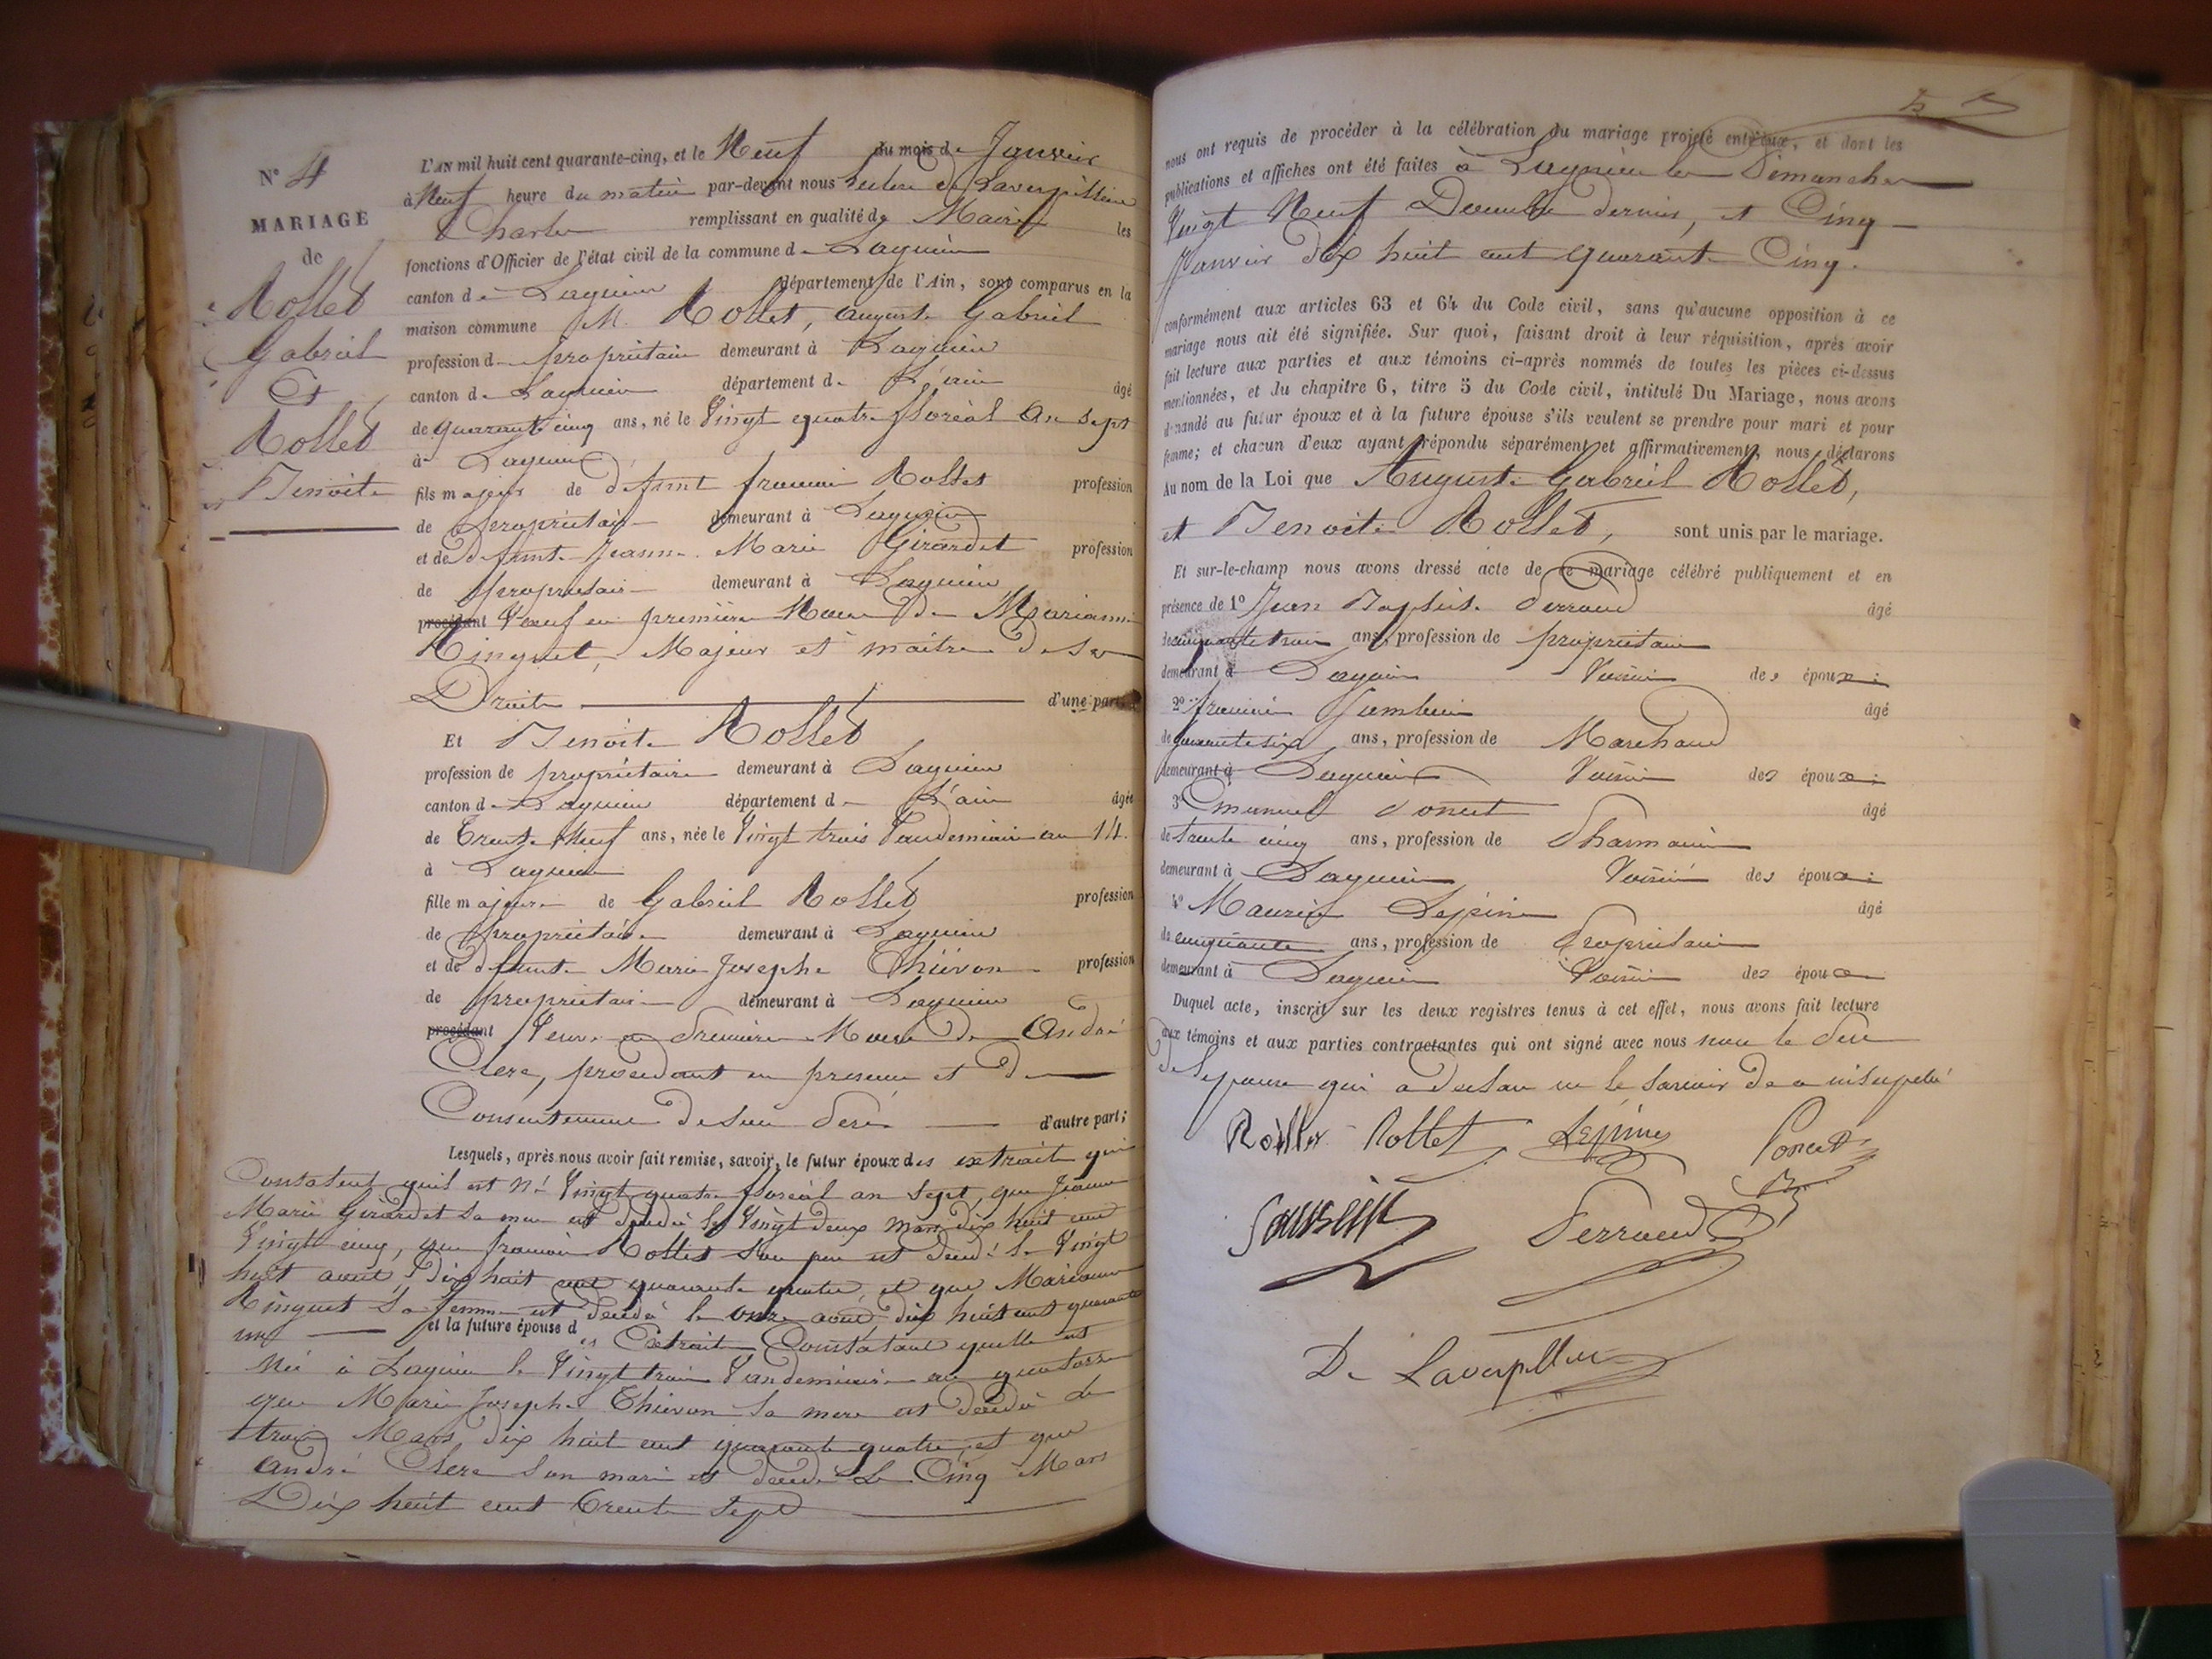 N° 4
MARIAGE
de
Rollet
Gabriel
Et
Rollet
Benoite
L'AN mil huit cent quarante-cinq, et le Neuf du mois de Janvier
à Neuf heure du matin par-devant nous de Laverpillière
Charles remplissant en qualité de Maire les
fonctions d'Officier de l'état civil de la commune de Lagnieu
canton de Lagnieu département de l'Ain, sont comparus en la
maison commune M. Rollet, auguste Gabriel
profession de propriétaire demeurant à Lagnieu
canton de Lagnieu département de L'ain âgé
de quarante cinq ans, né le Vingt quatre floréal an sept
à Lagnieu
fils majeur de défunt françois Rollet profession
de propriétaire demeurant à Lagnieu
et de défunte Jeanne Marie Girardet profession
de propriétaire demeurant à Lagnieu
procédant Veuf en première Noce de Marianne
Ringuet, Majeur et maître de ses
Droits d'une part;
Et Benoite Rollet
profession de propriétaire demeurant à Lagnieu
canton de Lagnieu département de L'ain âgée
de Trente Neuf ans, née le Vingt trois Vandemiaire an 14.
à Lagnieu
fille majeure de Gabriel Rollet profession
de propriétaire demeurant à Lagnieu
et de défunte Marie Josephe Thiévon profession
de propriétaire demeurant à Lagnieu
procédant Veuve en Première Noce de André
Clere, procedant en presence et du
Consentement de son Père d'autre part;
Lesquels, après nous avoir fait remise, savoir, le futur époux des extraits qui
Constatent quil est né Vingt quatre floréal an sept, que Jeanne
Marie Girardet sa mere est décédée le Vingt deux Mars dix huit cent
Vingt cinq, que françois Rollet son pere est decédé le Vingt
huit aout dix huit cent quarante quatre, et que Marianne
Ringuet sa femme est décédée le onze aout dix huit cent quarante
un et la future épouse des Extraits Constatant quelle est
Née à Lagnieu le Vingt trois Vandemiaire an quatorze
que Marie Josephe Thiévon sa mere est décédée le
trois Mars dix huit cent quarante quatre, et que
André Clere son mari est decedé Le Cinq Mars
Dix huit cent Trente Sept
nous ont requis de procéder à la célébration du mariage projeté entr'eux, et dont les
publications et affiches ont été faites à Lagnieu les Dimanches
Vingt Neuf Decembre dernier, et Cinq
Janvier dix huit cent quarante Cinq.
conformément aux articles 63 et 64 du Code civil, sans qu'aucune opposition à ce
mariage nous ait été signifiée. Sur quoi, faisant droit à leur réquisition, après avoir
fait lecture aux parties et aux témoins ci-après nommés de toutes les pièces ci-dessus
mentionnées, et du chapitre 6, titre 5 du Code civil, intitulé Du Mariage, nous avons
demandé au futur époux et à la future épouse s'ils veulent se prendre pour mari et pour
femme; et chacun d'eux ayant répondu séparément et affirmativement, nous déclarons
Au nom de la Loi que Auguste Gabriel Rollet,
et Benoite Rollet, sont unis par le mariage.
Et sur-le-champ nous avons dressé acte de ce mariage célébré publiquement et en
présence de 1° Jean Baptiste Perraud âgé
de cinquante trois ans, profession de propriétaire
demeurant à Lagnieu Voisin des époux
2° françois âgé
de quarante six ans, profession de Marchand
demeurant à Lagnieu Voisin des époux
3° Emanuel Poncet âgé
de trente cinq ans, profession de Pharmacien
demeurant à Lagnieu Voisin des époux
4° Maurice Lépine âgé
de cinquante ans, profession de Propriétaire
demeurant à Lagnieu Voisin des époux
Duquel acte, inscrit sur les deux registres tenus à cet effet, nous avons fait lecture
aux témoins et aux parties contractantes qui ont signé avec nous non le Père
de lepouse qui a declaré ne le savoir de ce
Rollet Rollet Lépine Poncet
Perraud
De Laverpillière